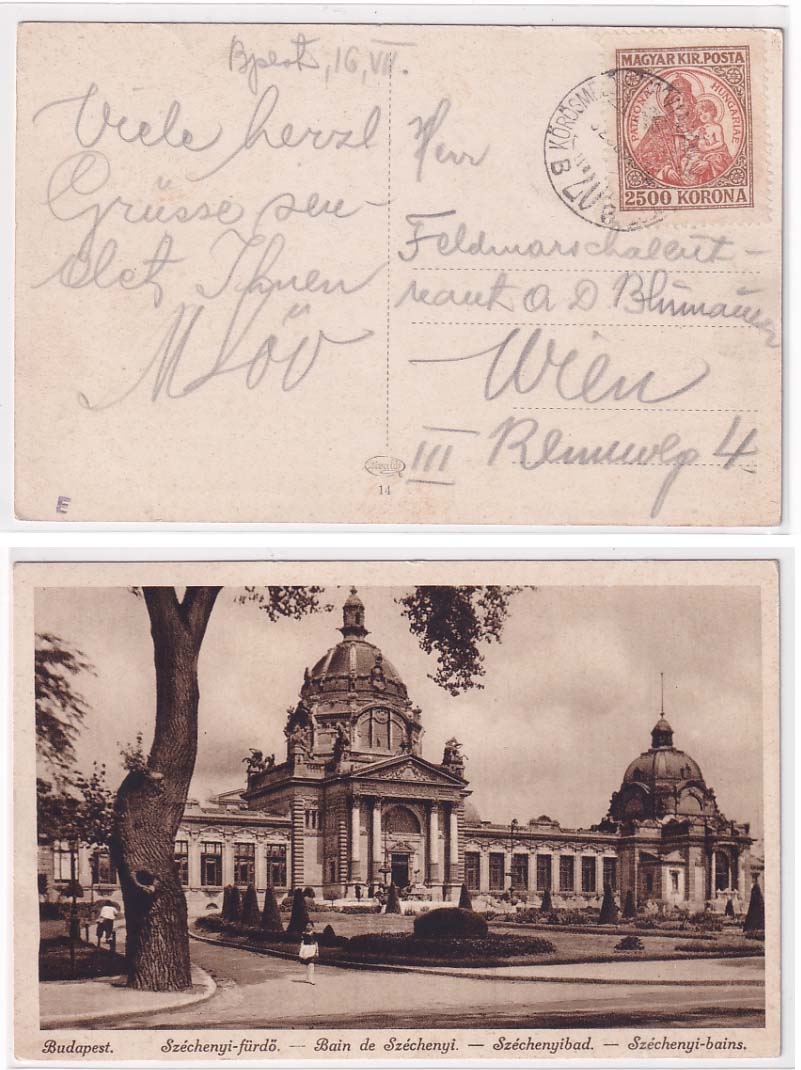 Bpest, 16, VII.
Viele herzl
Grüsse sen-
det Ihnen
Löv
MAGYAR KIR. POSTA
PATRONA HUNGARIAE
2500 KORONA
KÖRÖSME
B
Herr
Feldmarschaleut-
nant A D Blumauer
Wien
III Rennweg 4
14
E
Budapest. Széchenyi-fürdő. — Bain de Széchenyi. — Széchenyibad. — Széchenyi-bains.